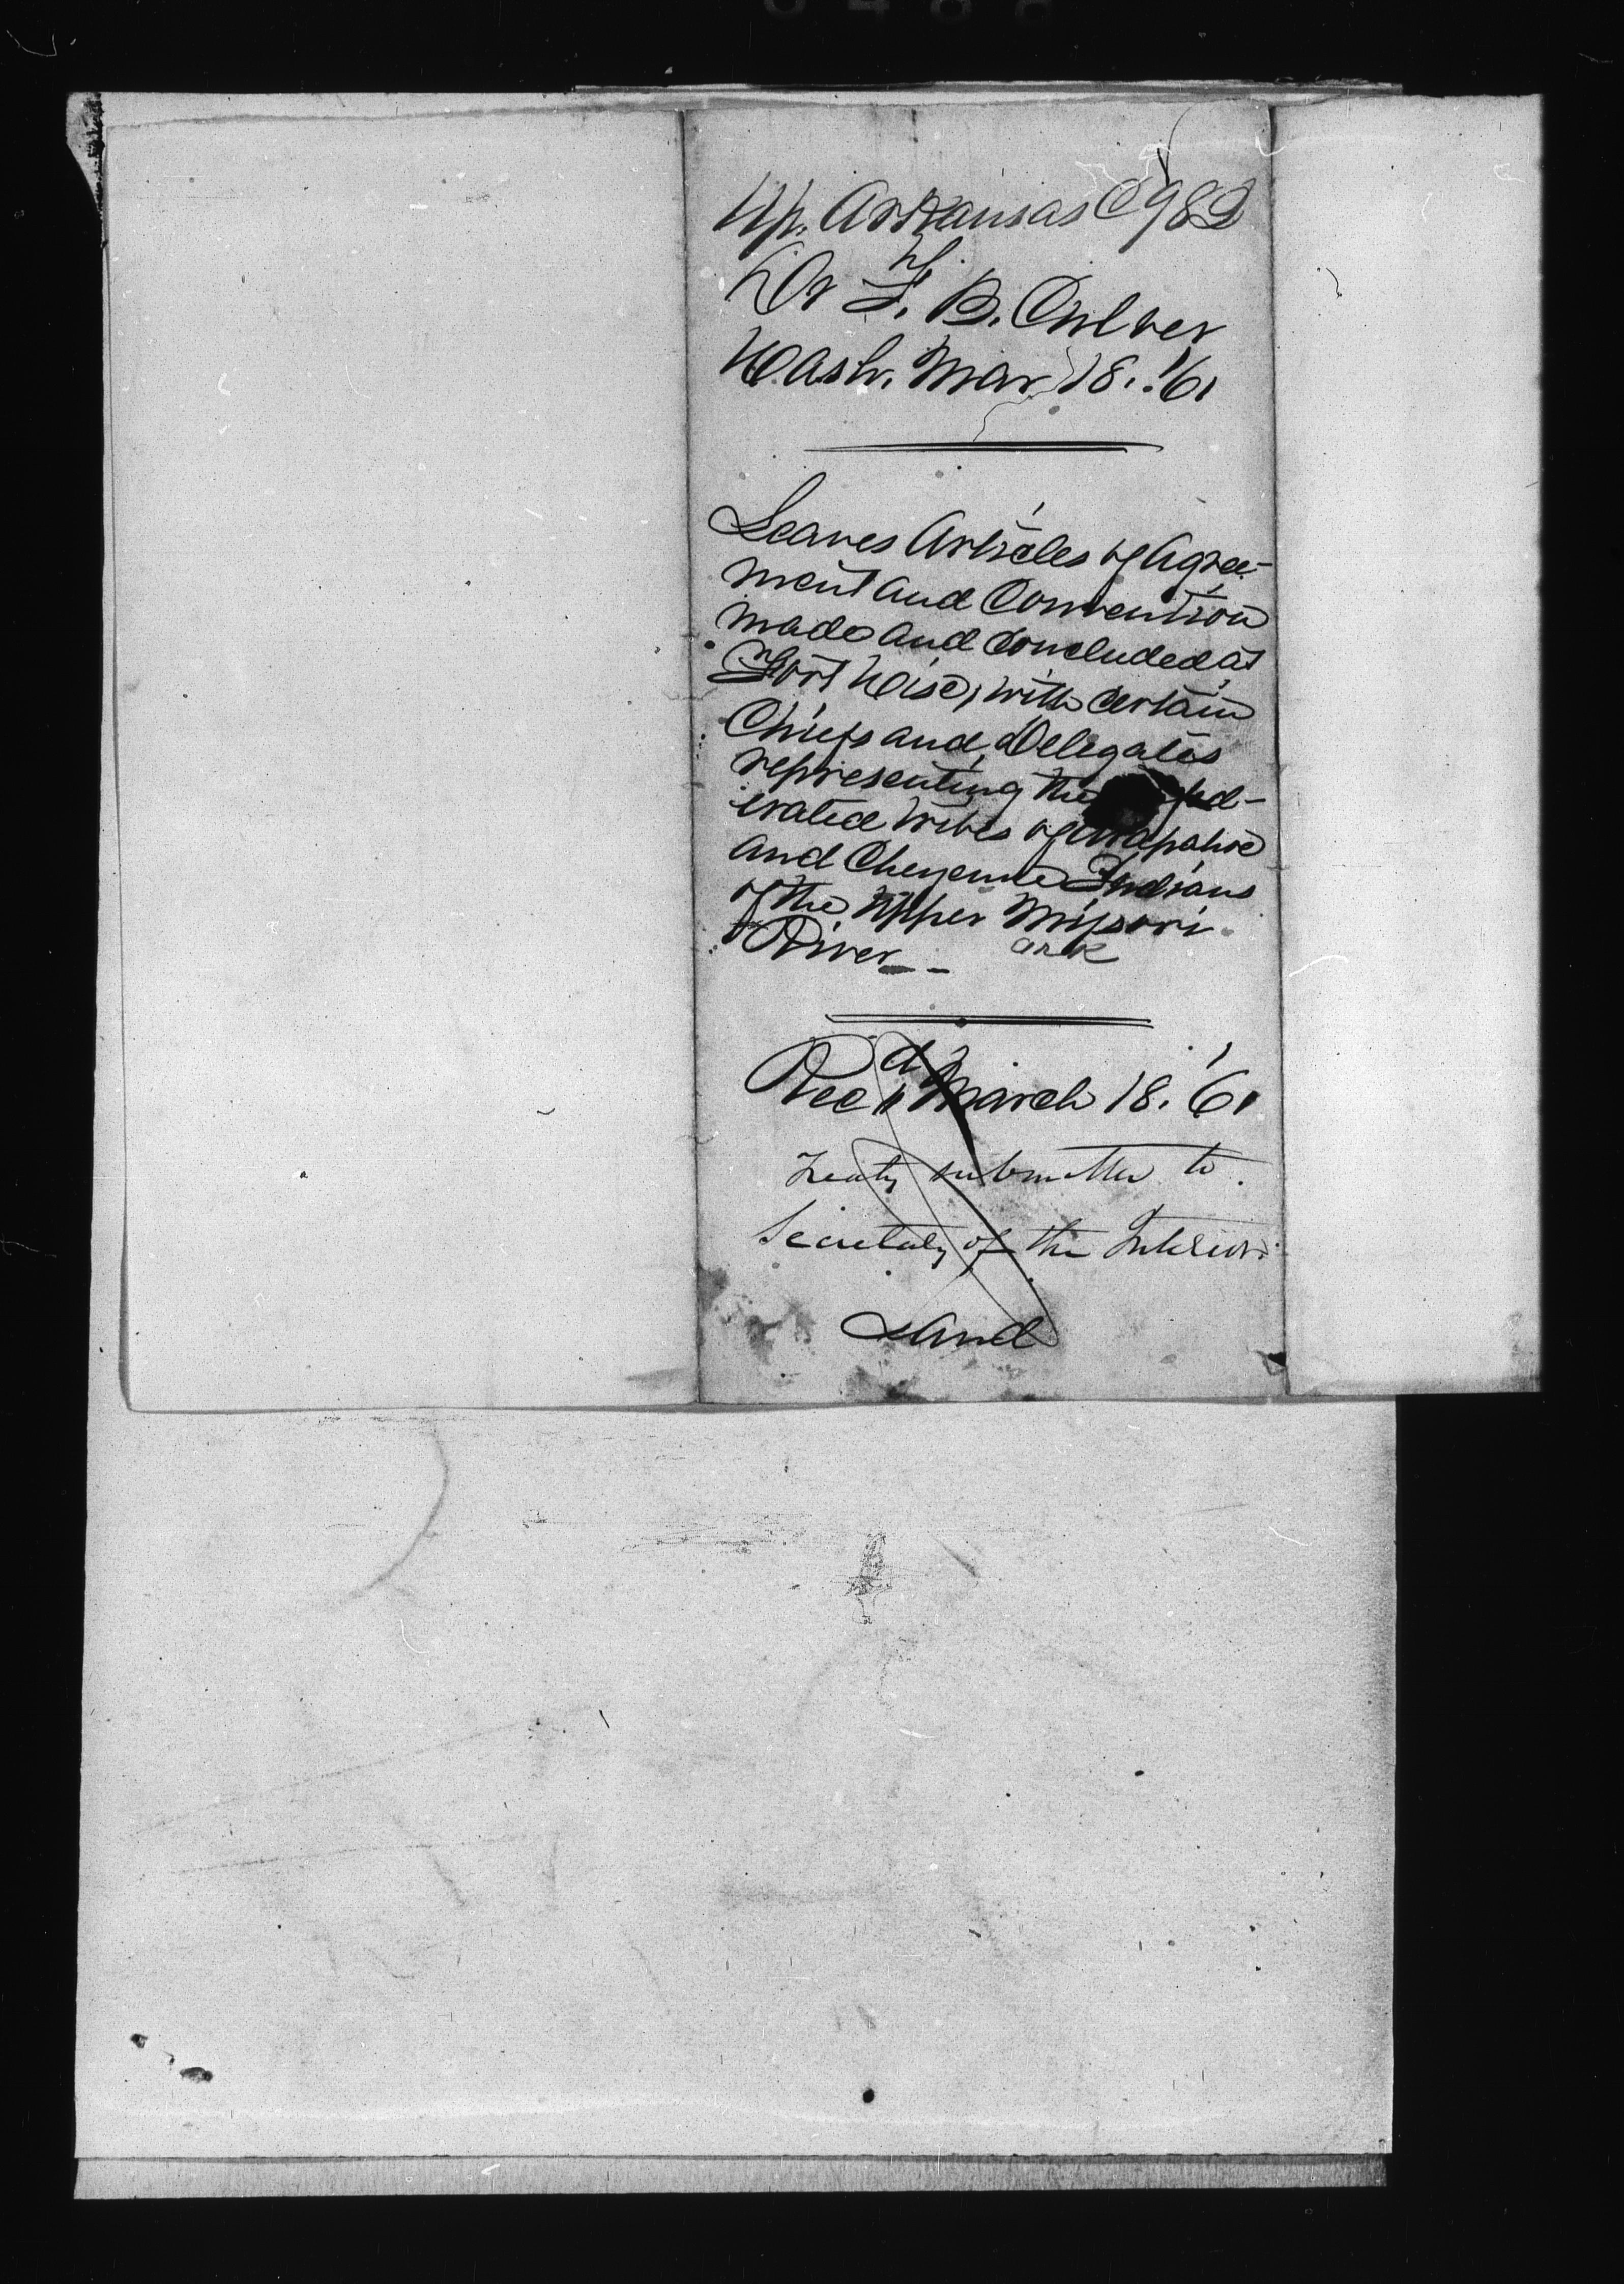 Up. Arkansas C982
Dr F. B. Culver
Wash. Mar 18. '61
Leaves Articles of Agree-
ment and Convention
made and Concluded at
Fort Wise, with certain
Chiefs and Delegates
representing the
erated tribes of Arapahoe
and Cheyenne Indians
of the Upper Missouri
River _ Ark
Recd March 18. '61
Treaty submitted to
Secretary of the Interior.
Land